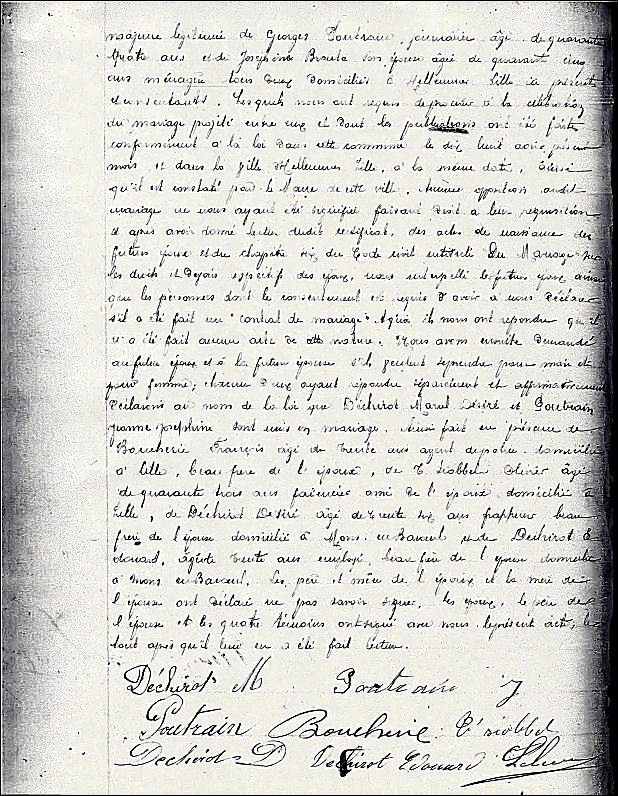 majeure légitime de Georges Poutrain, journalier âgé de quarante
quatre ans et de Joséphine son épouse âgée de quarante cinq
ans ménagère tous deux domiciliés à Hellemmes Lille ici présents
et consentants. Lesquels nous ont requis de procéder à la célébration
du mariage projeté entre eux et dont les publications ont été faites
conformément à la loi dans cette commune le dix huit août présent
mois et dans la ville Hellemmes Lille, à la même date, ainsi
qu'il est constaté par le Maire de cette ville. Aucune opposition audit
mariage ne nous ayant été signifiée faisant droit à leur réquisition
et après avoir donné lecture dudit certificat, des actes de naissance des
futurs époux et du chapitre six du Code civil intitulé Du Mariage sur
les droits et devoirs respectifs des époux, nous interpellé les futurs époux ainsi
que les personnes dont le consentement est requis d'avoir à nous déclarer
s'il a été fait un "contrat de mariage" A quoi ils nous ont répondu qu'il
n'a été fait aucun acte de cette nature. Nous avons ensuite demandé
au futur époux et à la future épouse s'ils veulent se prendre pour mari et
pour femme; chacun d'eux ayant répondu séparément et affirmativement
déclarons au nom de la loi que Déchirot Marcel Désiré et Poutrain
Jeanne Joséphine sont unis en mariage. Ainsi fait en présence de
Boucherie François âgé de trente ans agent de police domicilié
à Lille, beau frère de l'époux, de Olivier âgé
de quarante trois ans ami de l'époux domicilié à
Lille, de Déchirot Désiré âgé de trente six ans frappeur beau
frère de l'épouse domicilié à Mons en Baroeul et de Déchirot E
douard, âgé de trente ans employé, beau frère de l'épouse domicilié
à Mons en Baroeul. Les père et mère de l'époux et la mère de
l'épouse ont déclaré ne pas savoir signer. Les époux, le père de
l'épouse et les quatre témoins ont signé avec nous le présent acte, le
tout après qu'il leur en a été fait lecture.
Déchirot M Poutrain J
Poutrain Boucherie
Dechirot D Dechirot Edouard